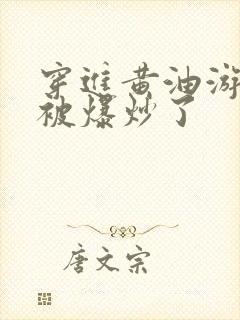 穿进黄油游
被爆炒了
唐文宗